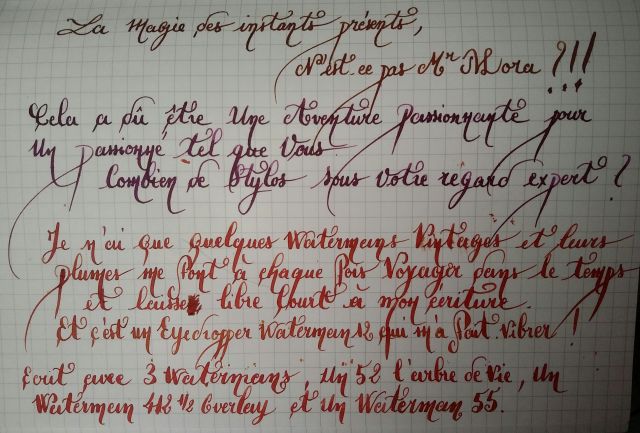 La Magie des instants présents,
N'est ce pas Mr Mora ?!!
Cela a dû être Une Aventure passionnante pour
Un passionné tel que Vous
Combien de Stylos sous Votre regard expert ?
Je n'ai que quelques Watermans Vintages et leurs
plumes me font à chaque fois Voyager dans le temps
et laisse libre Court à mon écriture.
Et c'est un Eyedropper Waterman 12 qui m'a fait Vibrer !
Ecrit avec 3 Watermans, Un 52 l'arbre de Vie, Un
Waterman 412 1/2 Overlay et Un Waterman 55.